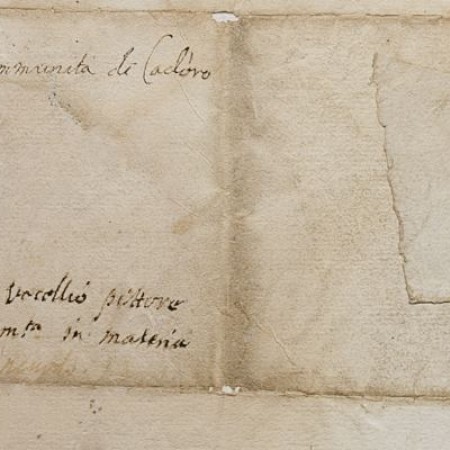 mmunità de Cadóro
Vecellio pittore
m.ta in materia